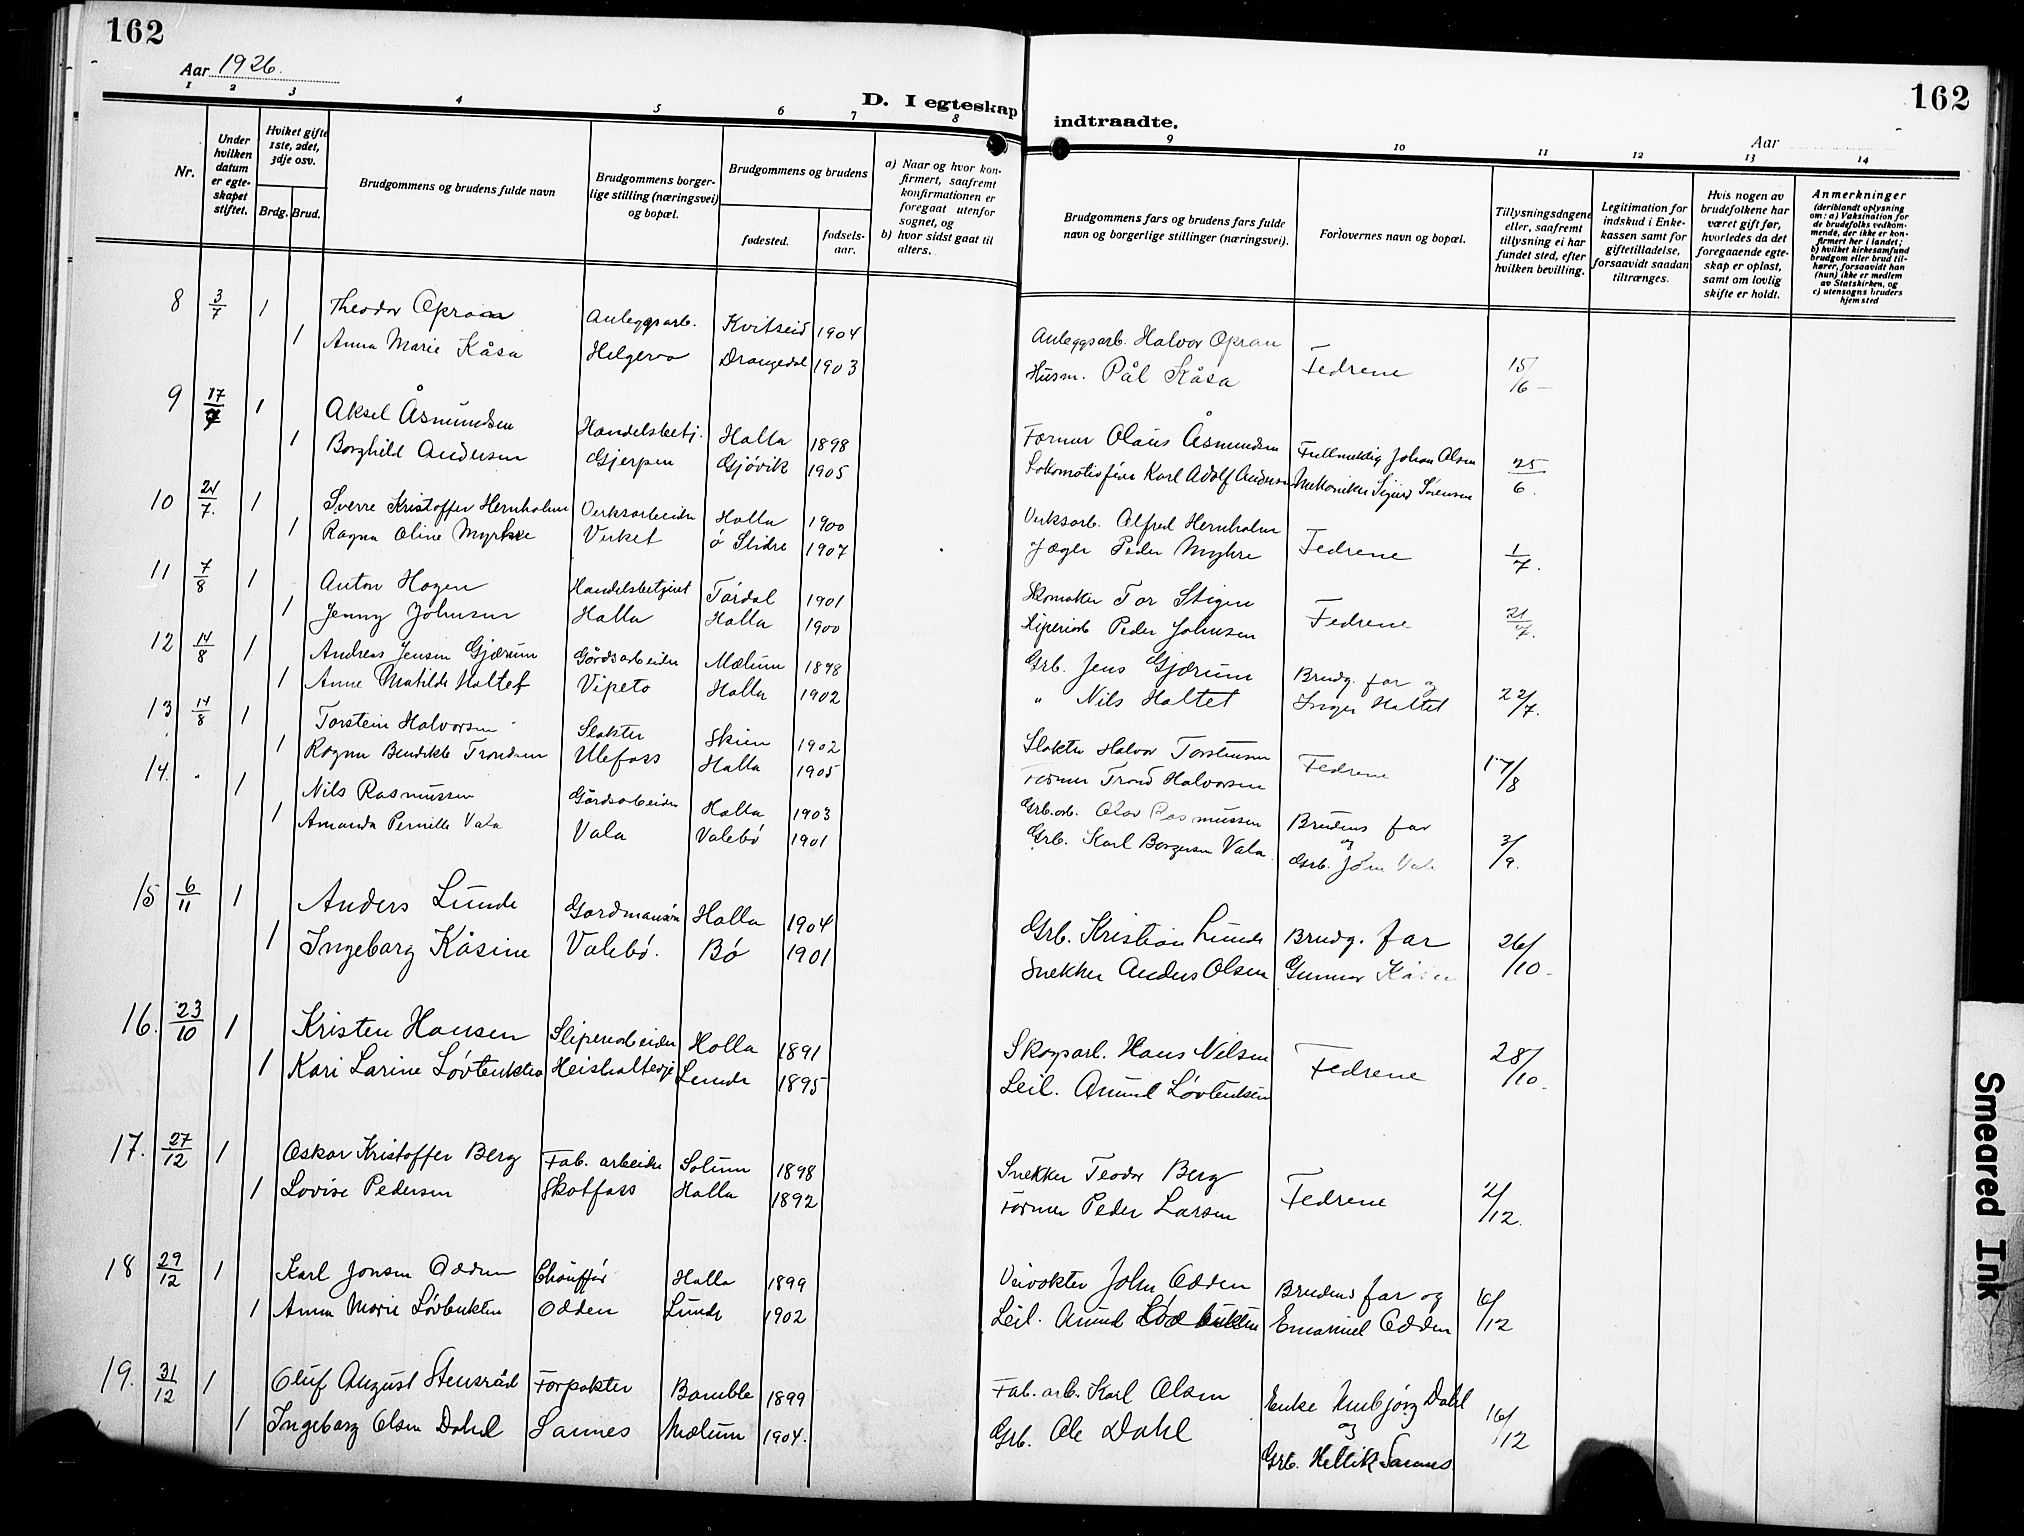 162
Aar 1926.
D. I egteskap
1 2 3 4 5 6 7 8
Nr.
Under hvilken datum er egte-skapet stiftet.
Hviket gifte 1ste, 2det, 3dje osv.
Brdg. Brud.
Brudgommens og brudens fulde navn
Brudgommens borger-lige stilling (næringsvei) og bopæl.
Brudgommens og brudens
fødested.
fødsels-aar.
a) Naar og hvor kon-firmert, saafremt konfirmationen er foregaat utenfor sognet, og
b) hvor sidst gaat til alters.
162
indtraadte.
Aar
9 10 11 12 13 14
Brudgommens fars og brudens fars fulde navn og borgerlige stillinger (næringsvei).
Forlovernes navn og bopæl.
Tillysningsdagene eller, saafremt tillysning ei har fundet sted, efter hvilken bevilling.
Legitimation for indskud i Enke-kassen samt for giftetilladelse, forsaavidt saadan tiltrænges.
Hvis nogen av brudefolkene har været gift før, hvorledes da det foregaaende egte-skap er opløst, samt om lovlig skifte er holdt.
Anmerkninger
(deriblandt oplysning om: a) Vaksination for de brudefolks vedkom-mende, der ikke er kon-firmert her i landet; b) hvilket kirkesamfund brudgom eller brud til-hører, forsaavidt han (hun) ikke er medlem av Statskirken, og c) utensogns bruders hjemsted
8 3/7 1 Theodor Opran Anleggsarb. Kvitseid 1904 Anleggsarb. Halvor Opran
1 Anna Marie Kåsa Helgerva Drangedal 1903 Husm. Pål Kåsa Fedrene 15/6
9 17/7 1 Aksel Åsmundsen Handelsbetj. Holla 1898 Former Olaus Åsmundsen Fullmektig Johan Olsen
1 Borghild Andersen Gjerpen Gjøvik 1905 Lokomotivfører Karl Adolf Andersen Mekaniker Sigurd Sørensen 25/6.
10 24/7. 1 Sverre Kristoffer Hernholm Verksarbeider Holla 1900 Verksarb. Alfred Hernholm
1 Ragna Oline Myhre Verket Ø Slidre 1907 Jæger Peder Myhre Fedrene 1/7.
11 7/8 1 Anton Hagen Handelsbetjent Tørdal 1901 Skomaker Tor Stigen
1 Jenny Johnsen Holla Holla 1900 Sliperiarb Peder Johnsen Fedrene 21/7.
12 14/8 1 Andreas Jensen Gjærum Gårdsarbeider Mælum 1898 Grb. Jens Gjærum Brudg. far og
1 Anne Matilde Haltet Vipeto Holla 1902 " Nils Haltet Inger Haltet 22/7.
13 14/8 1 Torstein Halvorsen Slakter Skien 1902 Slakter Halvor Torstensen
1 Ragna Bendikte Trondsen Ulefoss Holla 1905 Former Trond Halvorsen Fedrene 17/8
14. " 1 Nils Rasmussen Gårdsarbeider Holla 1903 Grb.arb. Olav Rasmussen Brudens far
1 Amanda Pernille Vala Vala Valebø 1901 Grb. Karl Borgersen Vala og Grb. John Vala 3/9.
15 6/11 1 Anders Lunde Gardmansøn Holla 1904 Grb. Kristian Lunde Brudg. far
1 Ingeborg Kåsine Valebø. Bø 1901 Snekker Anders Olsen Gunnar Kåsin 26/10
16. 23/10 1 Kristen Hansen Sliperiarbeider Holla 1891 Skogsarb. Hans Nilsen
1 Kari Larine Løvbukten Heisholtedje Lunde 1895 Leil. Amund Løvbuksen Fedrene 28/10.
17. 27/12 1 Oskar Kristoffer Berg Fab. arbeider Solum 1898 Snekker Teodor Berg
1 Lovise Pedersen Skotfoss Holla 1892 Former Peder Larsen Fedrene 2/12.
18 29/12 1 Karl Jonsen Odden Chauffør Holla 1899 Veivokter John Odden Brudens far og
1 Anna Marie Løvbukten Odden Lunde 1902 Leil. Amund Løvbukten Emanuel Odden 6/12
19. 31/12 1 Oluf August Stensråd Forpakter Bamble 1899 Fab. arb. Karl Olsen Enke Umbjørg Dahl
1 Ingeborg Olsen Dahl Sannes Mælum 1904. Grb. Ole Dahl og Grb. Hellik Sannes 16/12
Smeared Ink